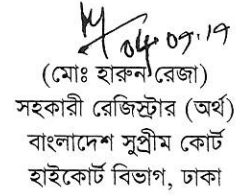 04.09.19
(মোঃ হারুন রেজা)
সহকারী রেজিস্ট্রার (অর্থ)
বাংলাদেশ সুপ্রীম কোর্ট
হাইকোর্ট বিভাগ, ঢাকা